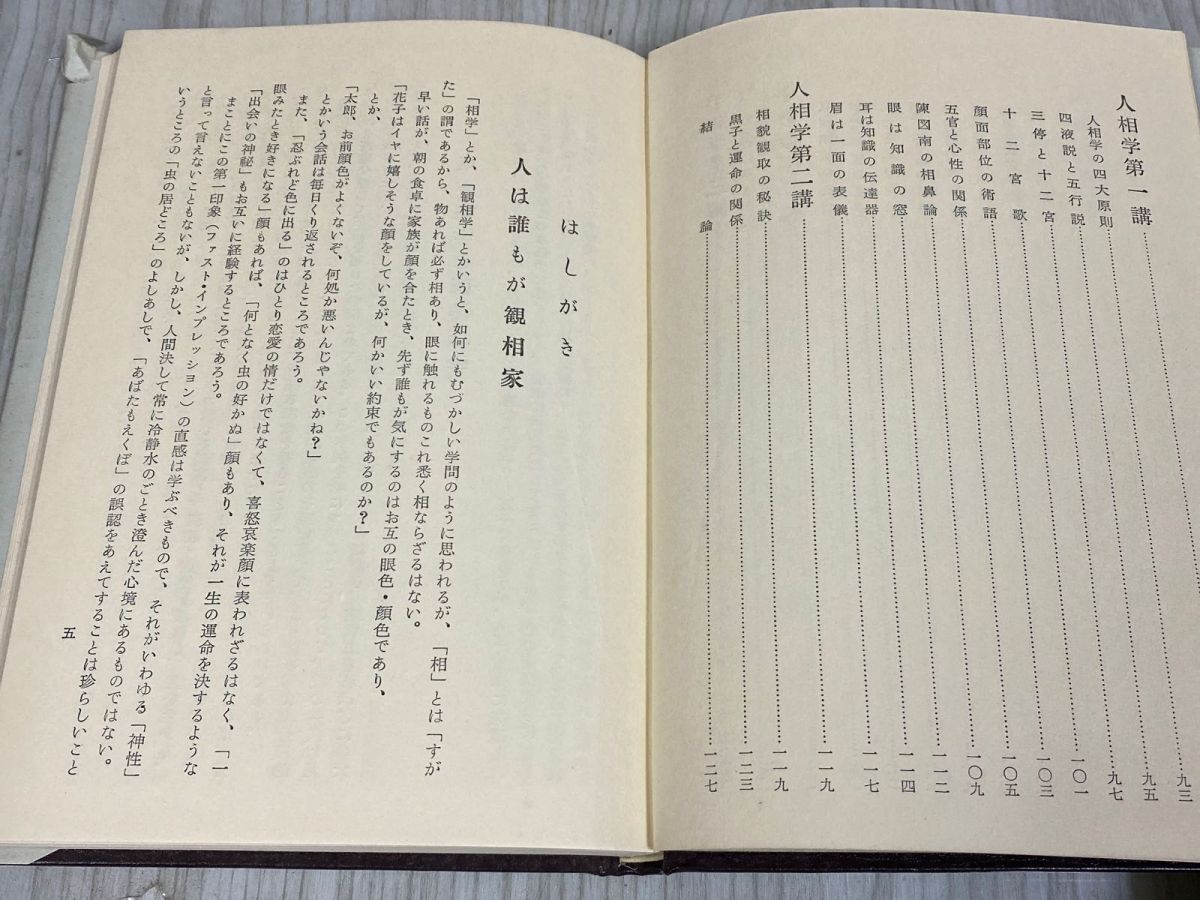 人相学第一講
人相学の四大原則……九三
四液説と五行説……九五
三停と十二宮……九七
十二宮歌……一〇一
顔面部位の術語……一〇三
五官と心性の関係……一〇五
陳図南の相鼻論……一〇九
眼は知識の窓……一一二
耳は知識の伝達器……一一四
眉は一面の表儀……一一七
人相学第二講……一一九
相貌観取の秘訣……一一九
黒子と運命の関係……一二三
結論……一二七
はしがき
人は誰もが観相家
「相学」とか、「観相学」とかいうと、如何にもむづかしい学問のように思われるが、「相」とは「すが
た」の謂であるから、物あれば必ず相あり、眼に触れるものこれ悉く相ならざるはない。
早い話が、朝の食卓に家族が顔を合たとき、先ず誰もが気にするのはお互の眼色・顔色であり、
「花子はイヤに嬉しそうな顔をしているが、何かいい約束でもあるのか?」
とか、
「太郎、お前顔色がよくないぞ、何処か悪いんじゃないかね?」
とかいう会話は毎日くり返されるところであろう。
また、「忍ぶれど色に出る」のはひとり恋愛の情だけではなくて、喜怒哀楽顔に表われざるはなく、「一
眼みたとき好きになる」顔もあれば、「何となく虫の好かぬ」顔もあり、それが一生の運命を決するような
「出会いの神秘」もお互いに経験するところであろう。
まことにこの第一印象(ファスト・インプレッション)の直感は学ぶべきもので、それがいわゆる「神性」
と言って言えないこともないが、しかし、人間決して常に冷静水のごとき澄んだ心境にあるものではない。
いうところの「虫の居どころ」のよしあしで、「あばたもえくぼ」の誤認をあえてすることは珍らしいこと
五